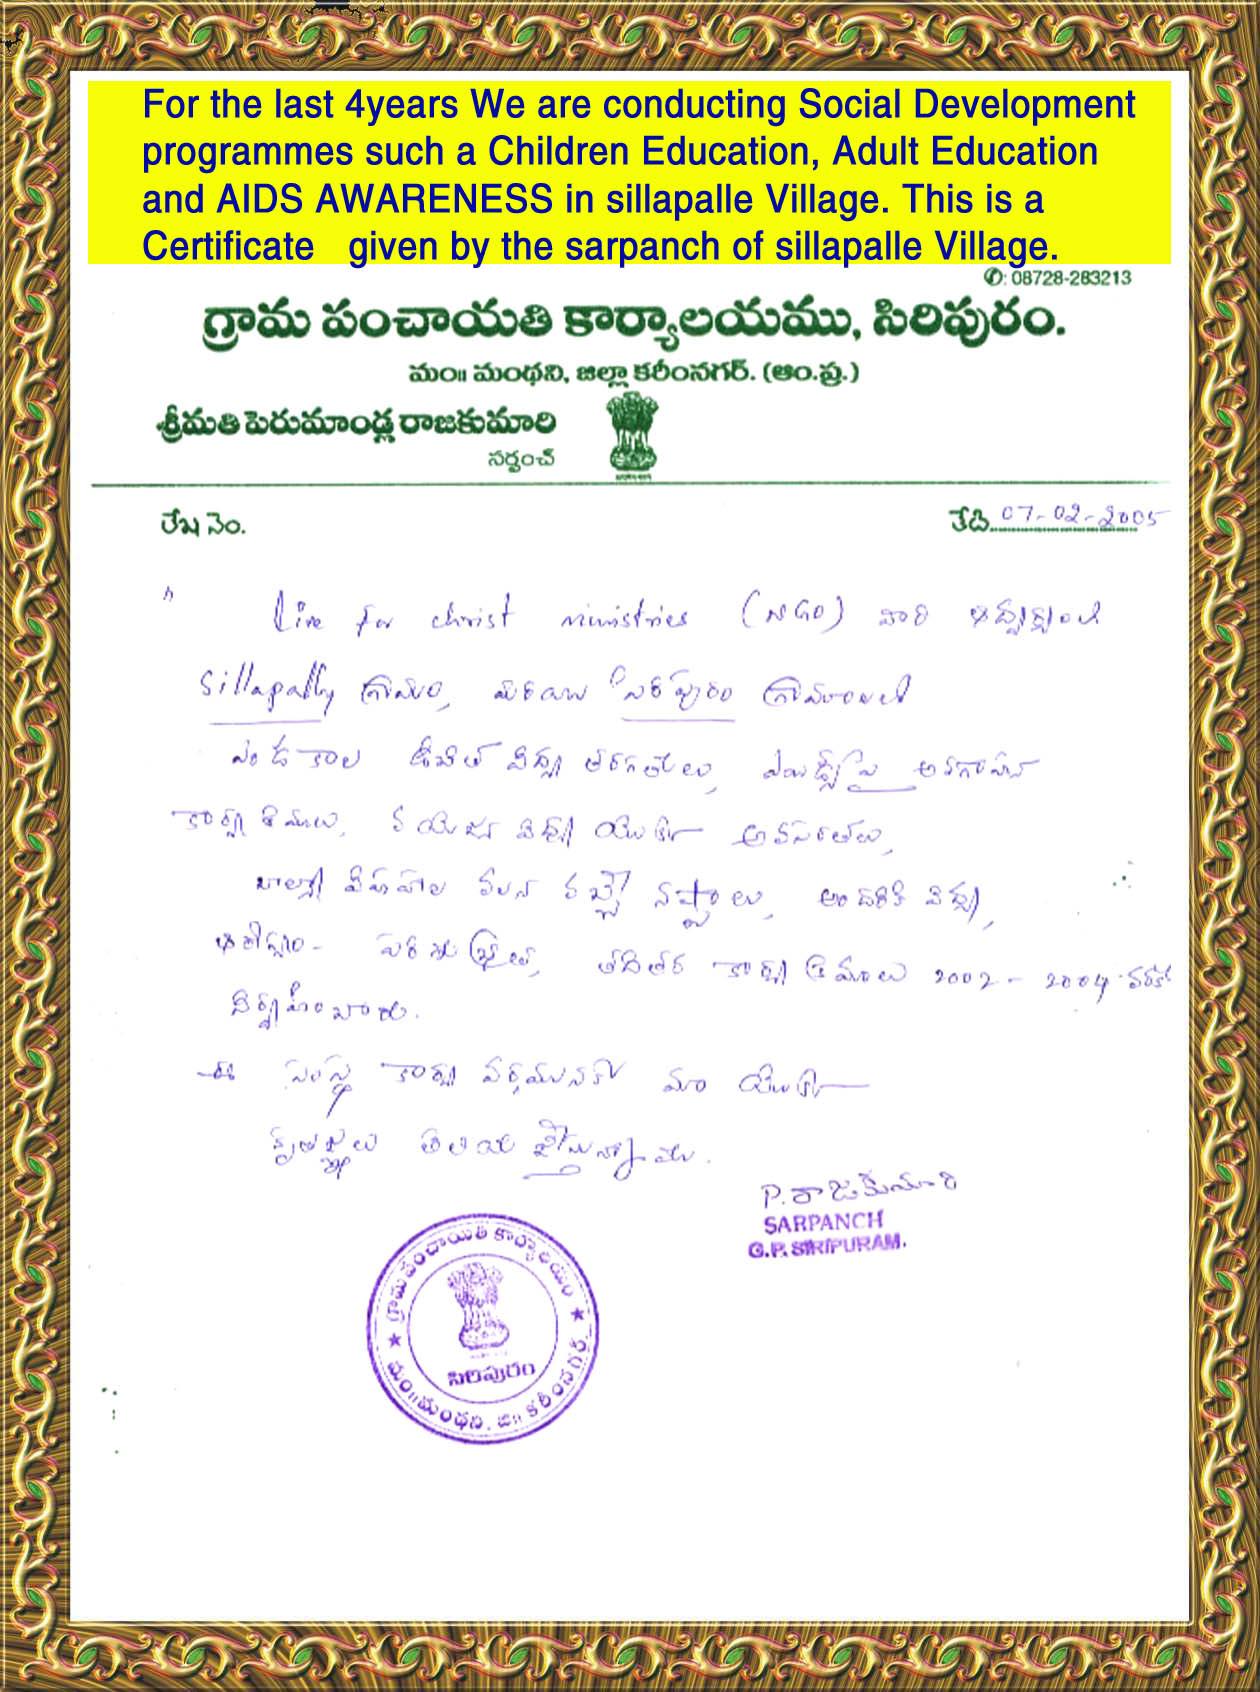 For the last 4years We are conducting Social Development
programmes such a Children Education, Adult Education
and AIDS AWARENESS in sillapalle Village. This is a
Certificate given by the sarpanch of sillapalle Village.
✆: 08728-283213
గ్రామ పంచాయతి కార్యాలయము, సిరిపురం.
మం॥ మంథని, జిల్లా కరీంనగర్. (ఆం.ప్ర.)
శ్రీమతి పెరుమాండ్ల రాజకుమారి
సర్పంచ్
లేఖ నెం.
తేది 07-02-2005
Live for christ ministries (NGO) వారి ఆధ్వర్యంలో
Sillapally గ్రామం, మరియు సిరిపురం గ్రామాలలో
ఎండకాల ఉచిత విద్య తరగతులు, ఎయిడ్స్ పై అవగాహన
కార్యక్రమాలు, వయోజన విద్య యొక్క అవసరతలు,
బాల్య వివాహాల వలన వచ్చే నష్టాలు, అందరికి విద్య,
ఆరోగ్యం - పరిశుభ్రత, తదితర కార్యక్రమాలు 2002 - 2004 వరకు
నిర్వహించారు.
ఈ సంస్థ కార్య వర్గమునకు మా యొక్క
కృతజ్ఞతలు తెలియ జేస్తున్నాము.
P. రాజకుమారి
SARPANCH
G.P. SIRIPURAM.
గ్రామ పంచాయితి కార్యాలయం
సిరిపురం
మం॥మంథని, జి॥ కరీంనగర్.